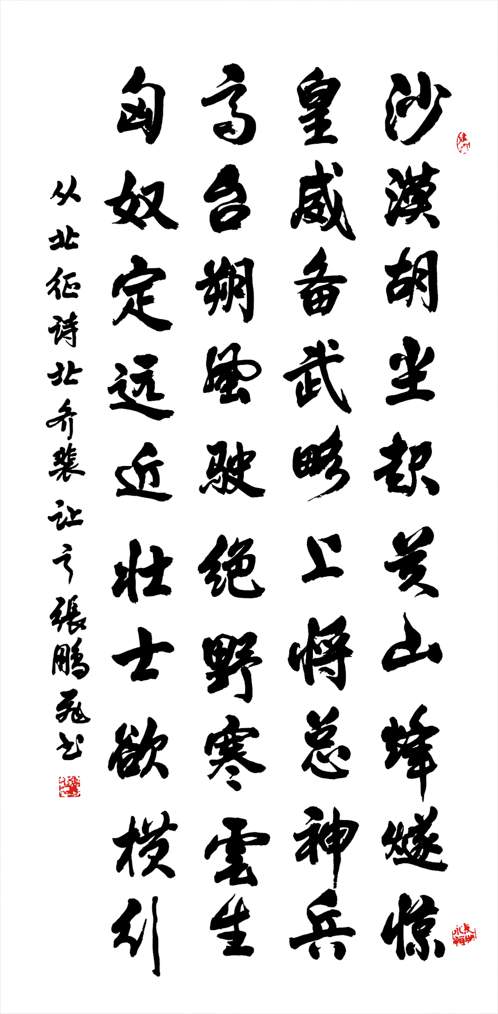 沙漠胡尘起关山烽燧惊
皇威奋武略上将总神兵
高台朔風驶绝野寒雲生
匈奴定远近壮士欲横行
从北征诗北齐裴让之張鵬飞书